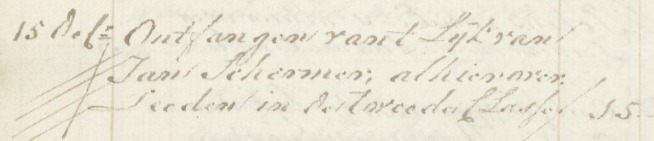 15 Dec: Ontfangen van t Lijk van
Jan Schermer, alhier over
leeden in de tweede Classe 15